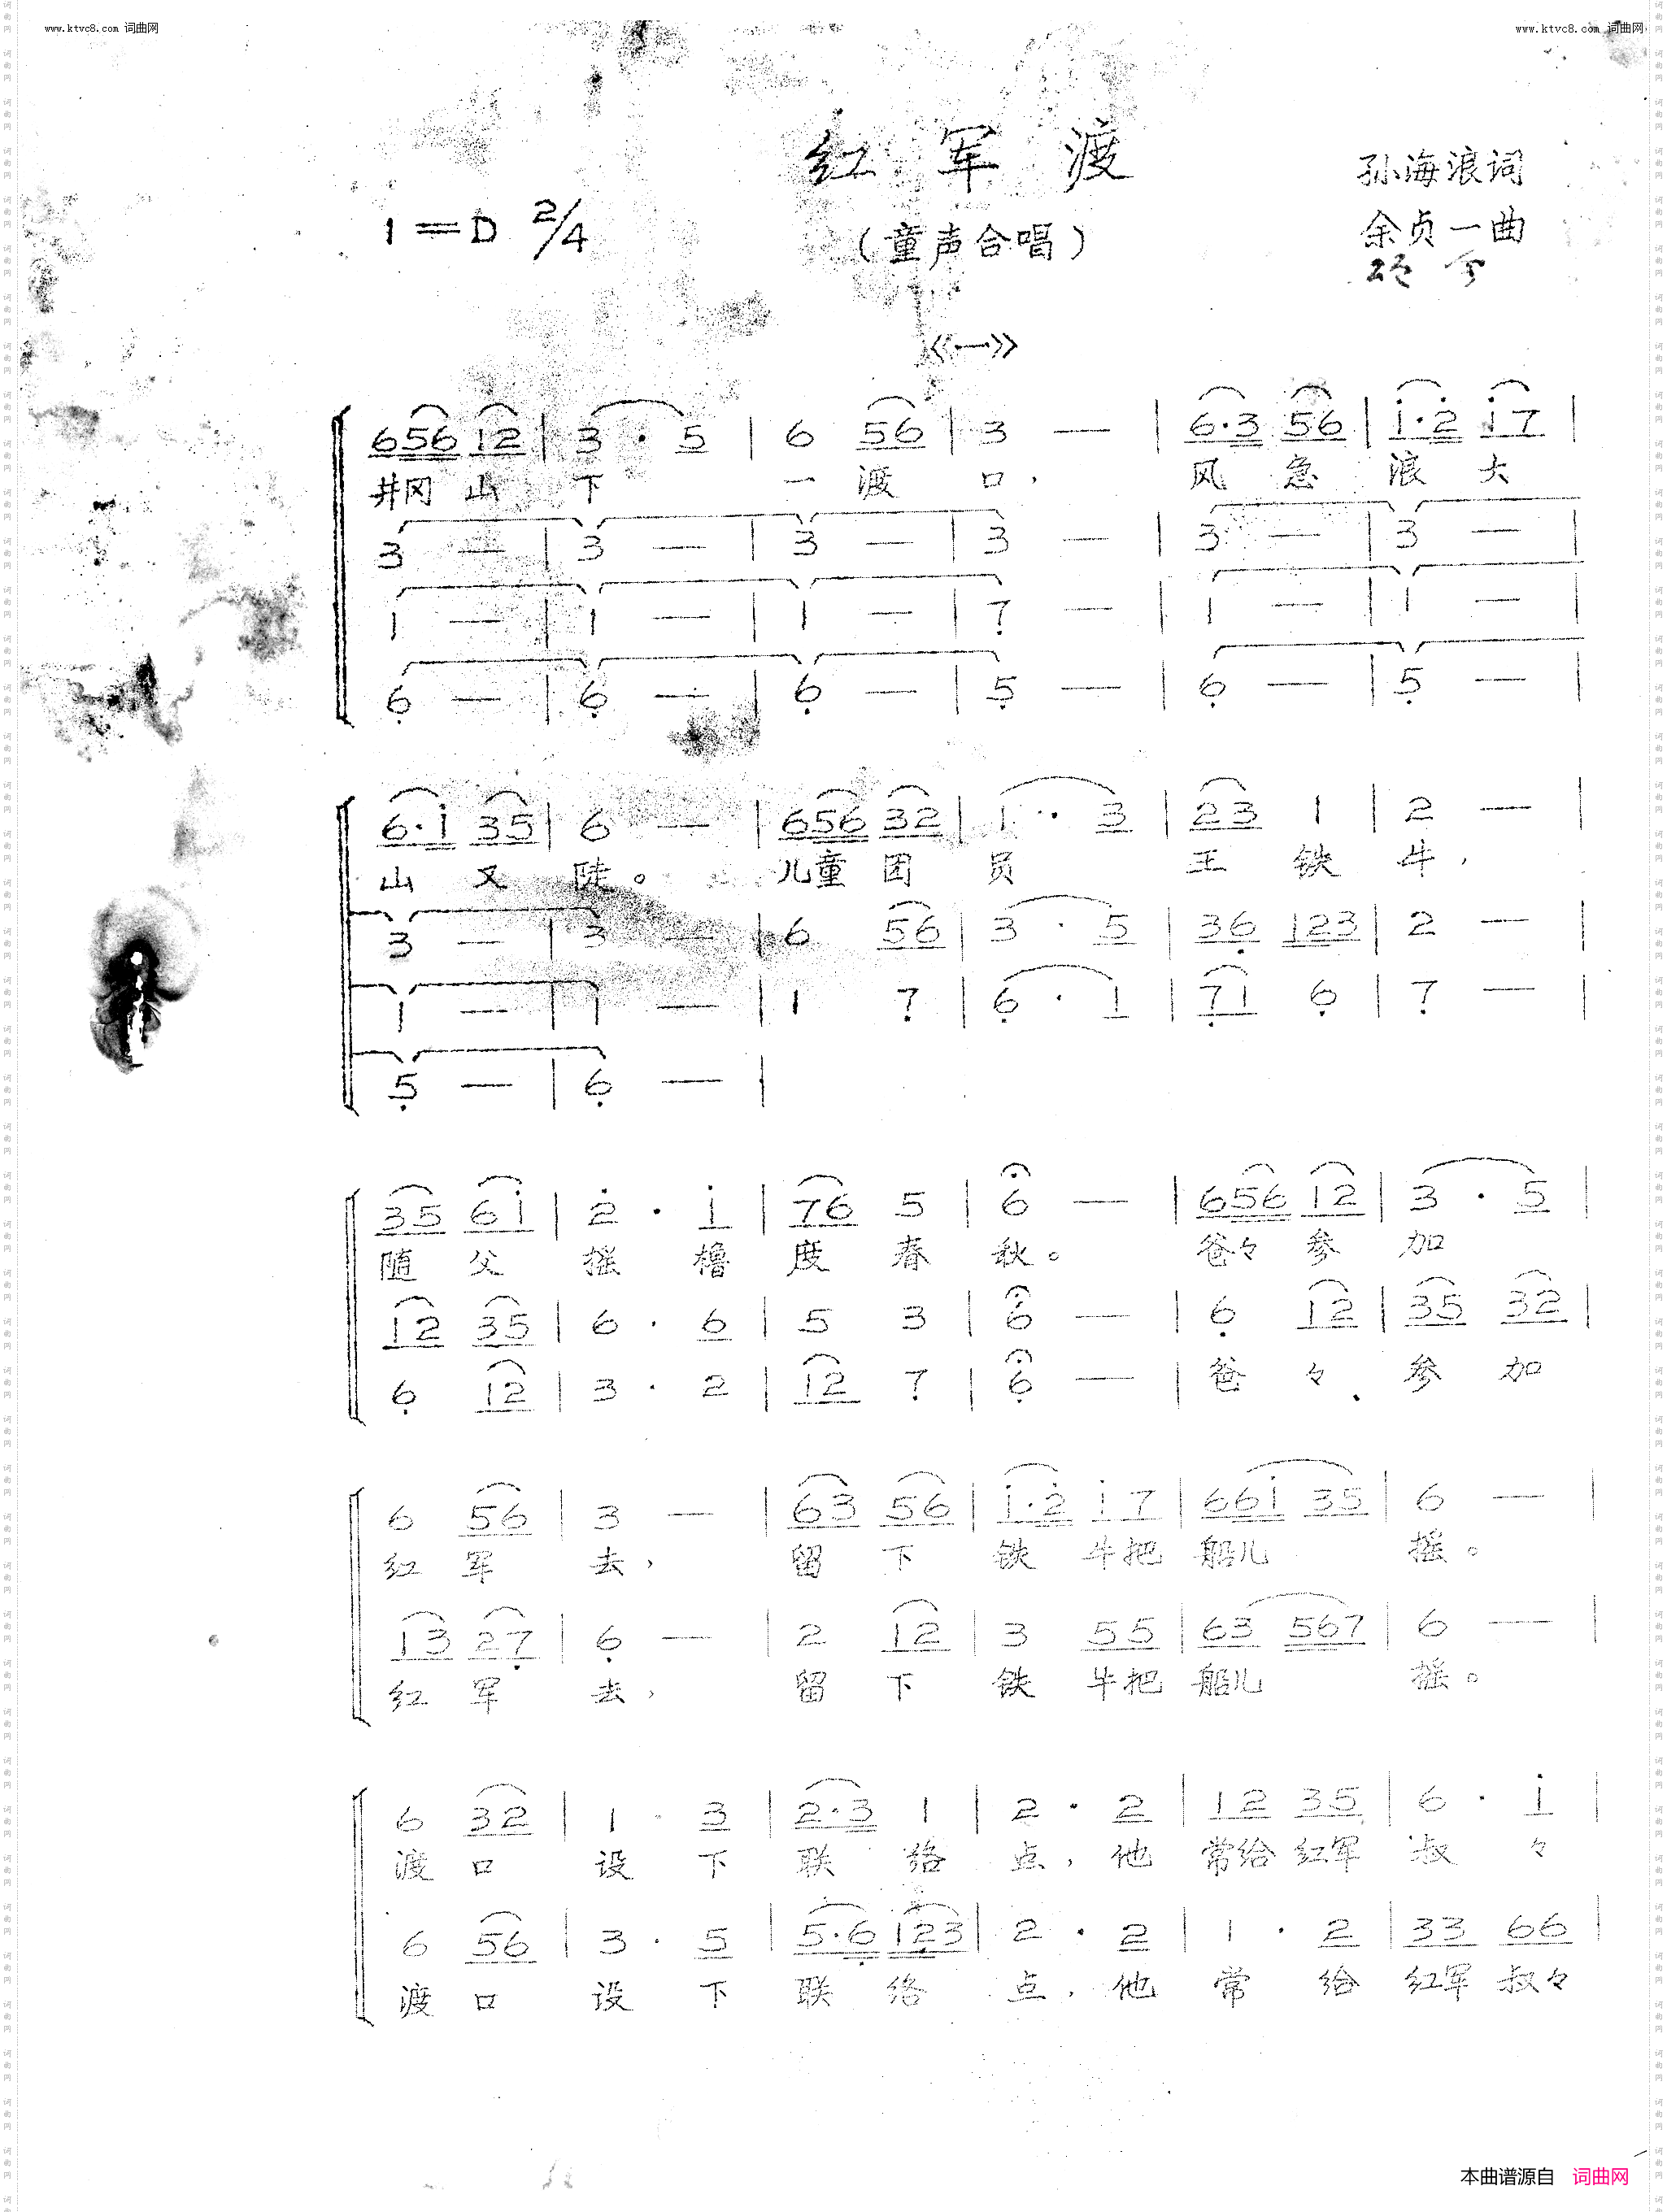 www.ktvc8.com 词曲网
www.ktvc8.com 词曲网
红 军 渡
孙海浪词
1=D 2/4
(童声合唱)
余贞一曲
《一》
656 12 | 3 · 5 | 6 56 | 3 — | 6·3 56 | i·2̇ i7 |
井冈 山 下 一 渡 口, 风 急 浪 大
3 — | 3 — | 3 — | 3 — | 3 — | 3 — |
1 — | 1 — | 1 — | 7̣ — | 1 — | 1 — |
6̣ — | 6̣ — | 6̣ — | 5̣ — | 6̣ — | 5̣ — |
6·i 35 | 6 — | 656 32 | 1 · 3 | 23 1 | 2 — |
山 又 陡。 儿童 团 员 王 铁 牛,
3 — | 3 — | 6 56 | 3 · 5 | 36̣ 123 | 2 — |
1 — | 1 — | 1 7̣ | 6̣ · 1 | 7̣1 6̣ | 7̣ — |
5̣ — | 6̣ — |
35 6i | 2̇ · i | 76 5 | 6 — | 656 12 | 3 · 5 |
随 父 摇 橹 度 春 秋。 爸々 参 加
12 35 | 6 · 6 | 5 3 | 6 — | 6̣ 12 | 35 32 |
6̣ 12 | 3 · 2 | 12 7̣ | 6̣ — | 爸 々 参 加
6 56 | 3 — | 63 56 | i·2̇ i 7 | 66i 35 | 6 — |
红 军 去, 留 下 铁 牛把 船儿 摇。
13 27̣ | 6̣ — | 2 12 | 3 55 | 63 567 | 6 — |
红 军 去, 留 下 铁 牛把 船儿 摇。
6 32 | 1 · 3 | 2·3 1 | 2 · 2 | 12 35 | 6 · i |
渡 口 设 下 联 络 点, 他 常给 红军 叔 々
6 56 | 3 · 5 | 5·6̣ 123 | 2 · 2 | 1 · 2 | 33 66 |
渡 口 设 下 联 络 点, 他 常 给 红军 叔々
本曲谱源自 词曲网